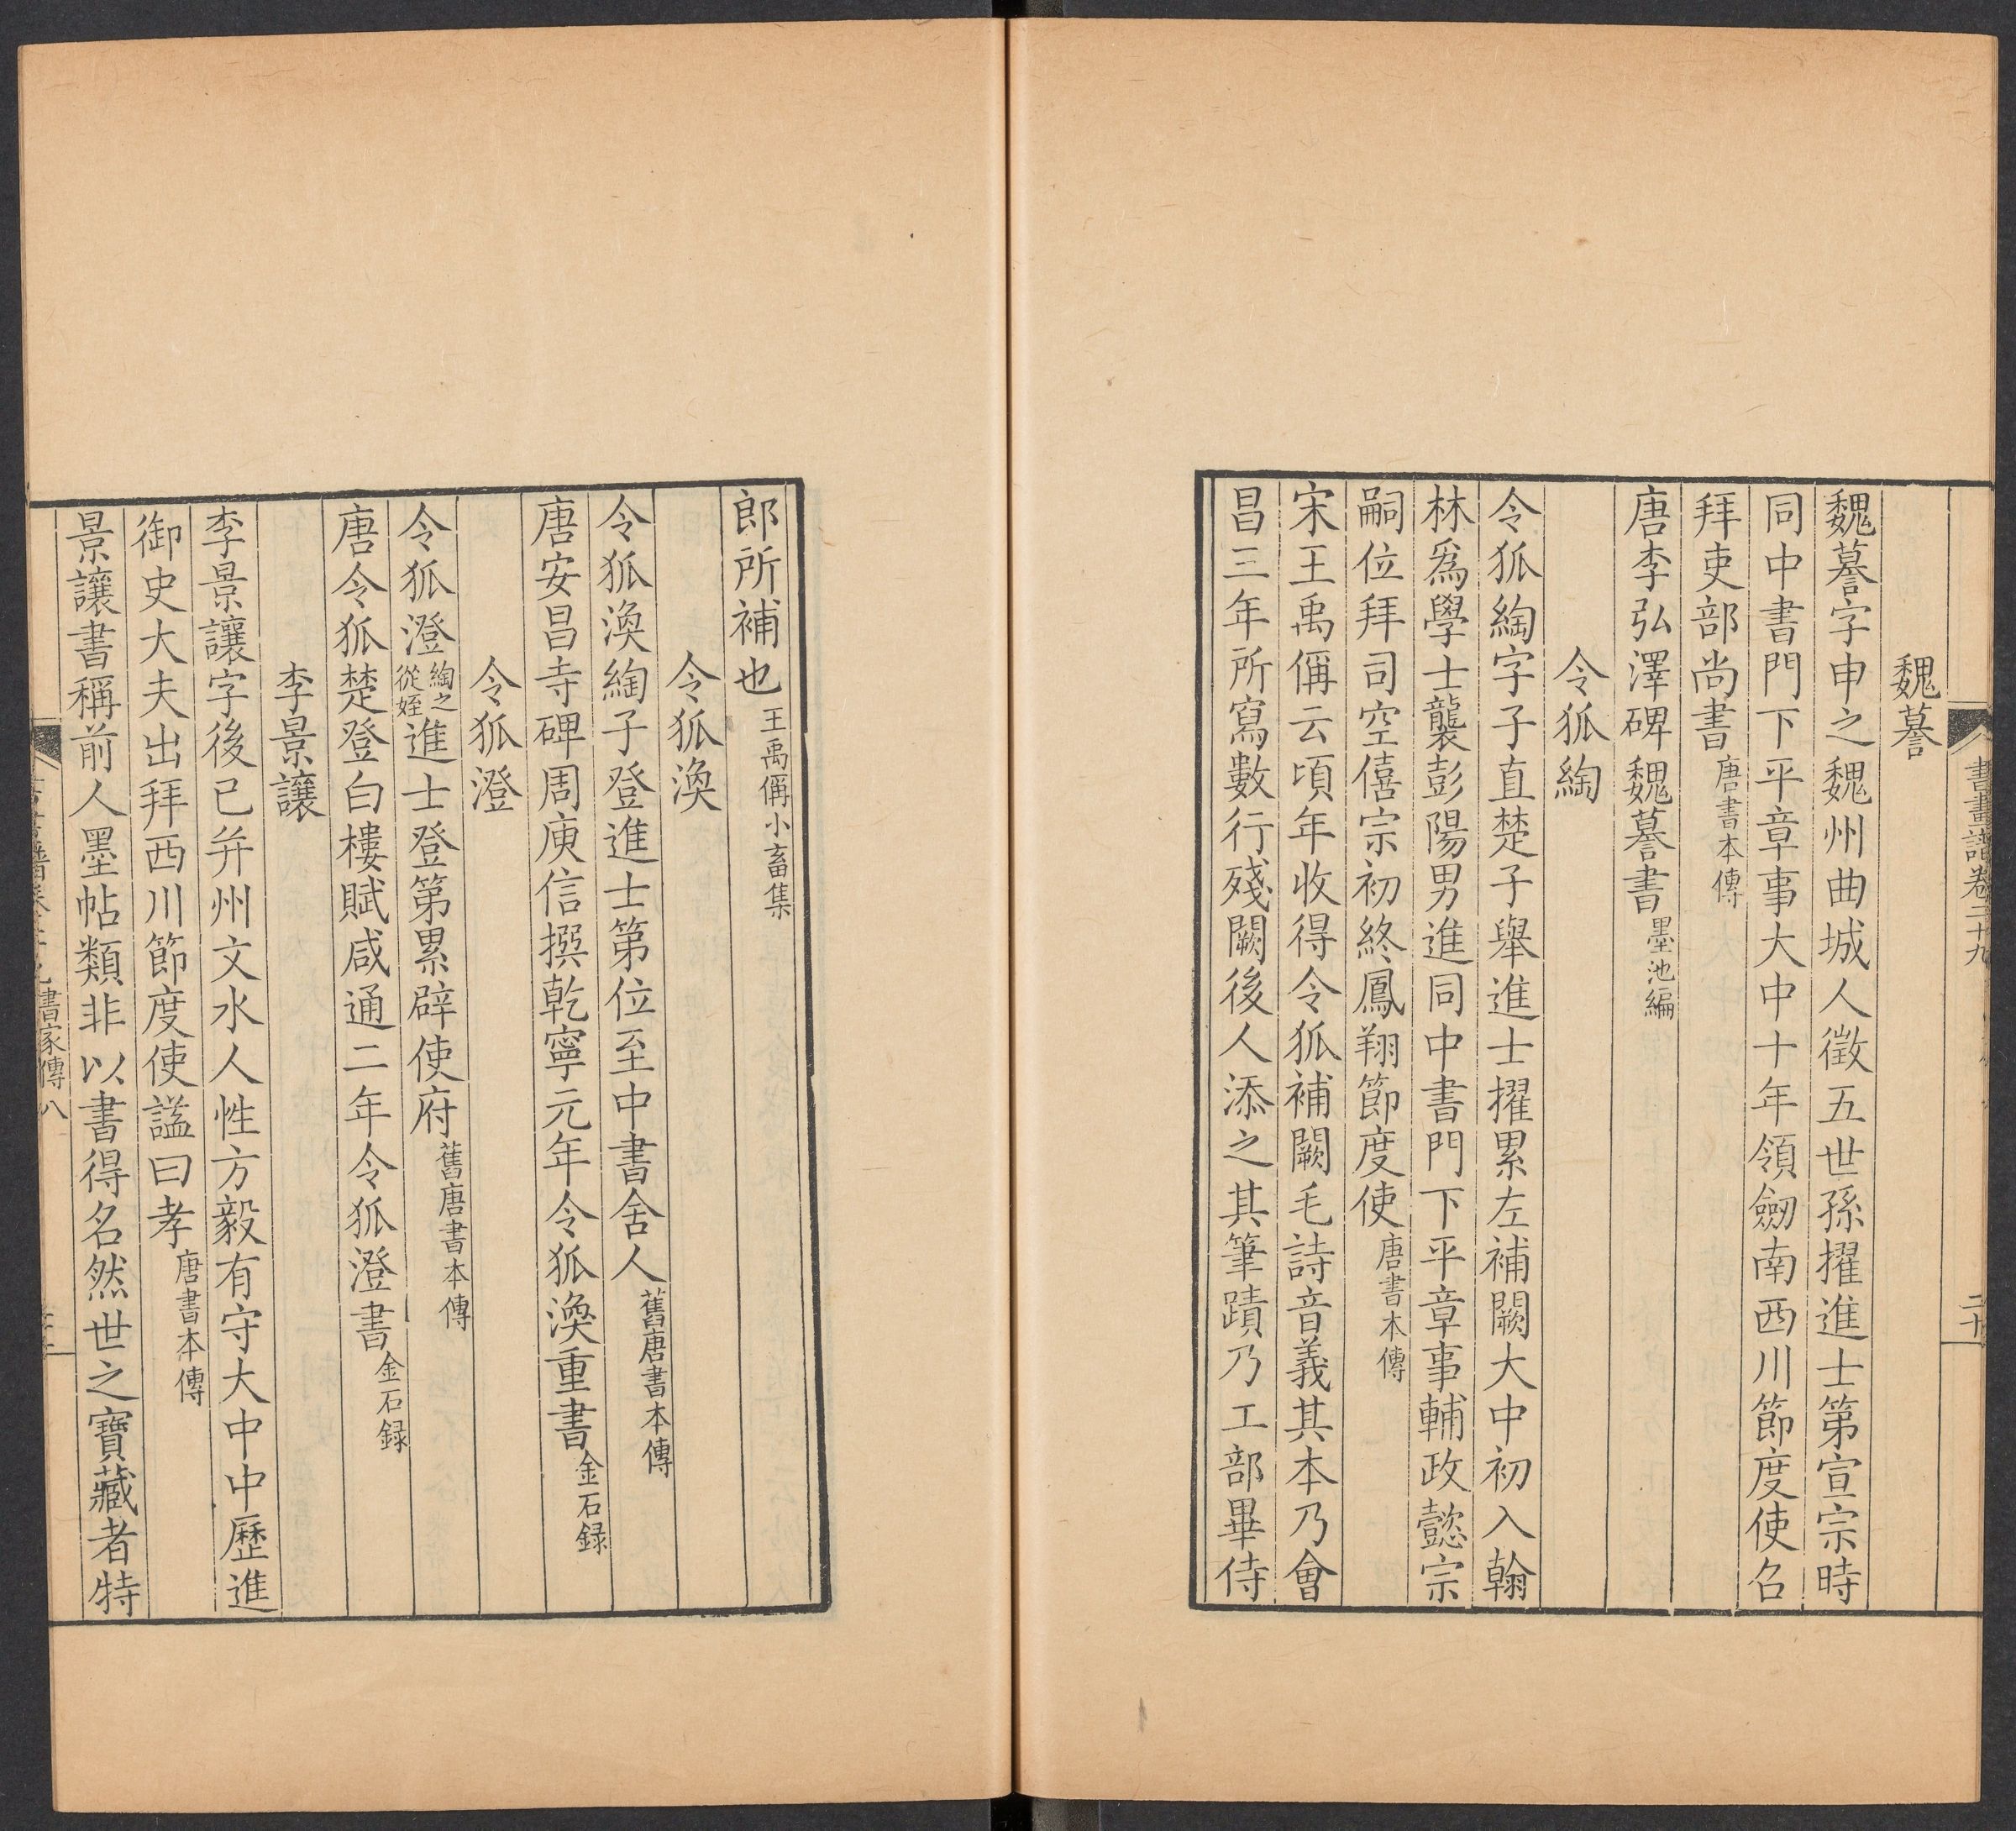 書畫譜卷二十九
二十
魏謩
魏謩字申之魏州曲城人徵五世孫擢進士第宣宗時
同中書門下平章事大中十年領劒南西川節度使召
拜吏部尚書唐書本傳
唐李弘澤碑魏謩書墨池編
令狐綯
令狐綯字子直楚子舉進士擢累左補闕大中初入翰
林爲學士襲彭陽男進同中書門下平章事輔政懿宗
嗣位拜司空僖宗初終鳳翔節度使唐書本傳
宋王禹偁云頃年收得令狐補闕毛詩音義其本乃會
昌三年所寫數行殘闕後人添之其筆蹟乃工部畢侍
郎所補也王禹偁小畜集
令狐渙
令狐渙綯子登進士第位至中書舍人舊唐書本傳
唐安昌寺碑周庾信撰乾寧元年令狐渙重書金石録
令狐澄
令狐澄綯之從姪進士登第累辟使府舊唐書本傳
唐令狐楚登白樓賦咸通二年令狐澄書金石録
李景讓
李景讓字後已并州文水人性方毅有守大中中歷進
御史大夫出拜西川節度使諡曰孝唐書本傳
景讓書稱前人墨帖類非以書得名然世之寶藏者特
書家傳八